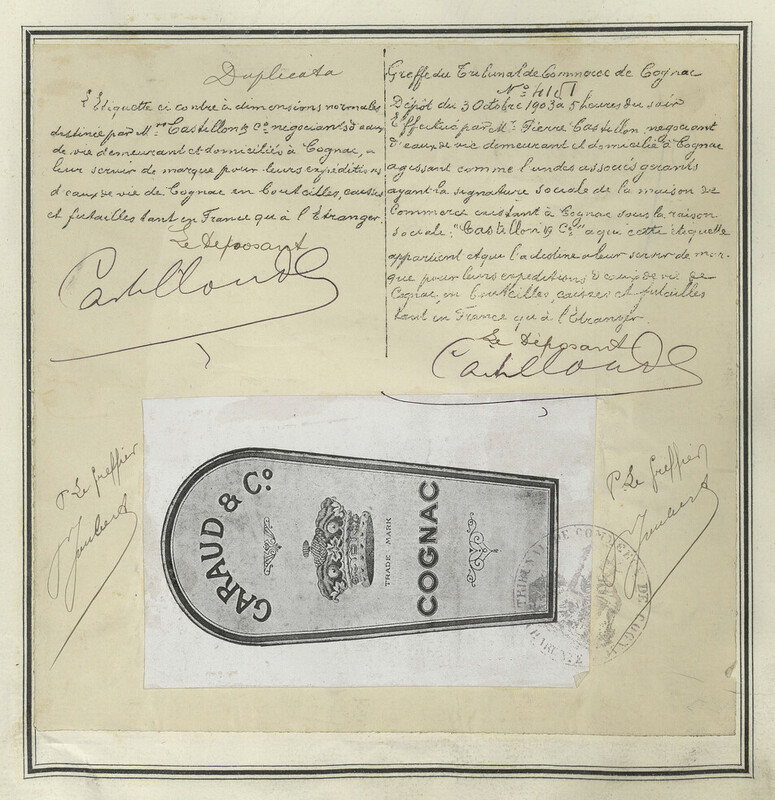 Duplicata
L'Etiquette ci contre à dimensions normales
destinée par Mrs Castillon & Co negociants d'eaux
de vie demeurant et domiciliés à Cognac, a
leur servir de marque pour leurs expéditions
d'eaux de vie de Cognac en bouteilles, caisses
et futailles tant en France qu'à l'Etranger.
Le Déposant
Greffe du Tribunal de Commerce de Cognac
No
Dépôt du 3 Octobre 1903 à 5 heures du soir
Effectué par Mr Pierre Castillon, negociant
d'eaux de vie demeurant et domicilié à Cognac
agissant comme l'un des associés gerants
ayant la signature sociale de la maison de
Commerce existant à Cognac sous la raison
sociale: "Castillon & Co" a qui cette étiquette
appartient et qui l'a destinée à leur servir de mar-
que pour leurs expéditions d'eaux de vie de
Cognac, en bouteilles, caisses et futailles
tant en France qu'à l'Etranger.
Le Déposant
P. Le Greffier
Jaubert
GARAUD & Co.
TRADE MARK
COGNAC
P. Le Greffier
Jaubert
TRIBUNAL DE COMMERCE DE COGNAC